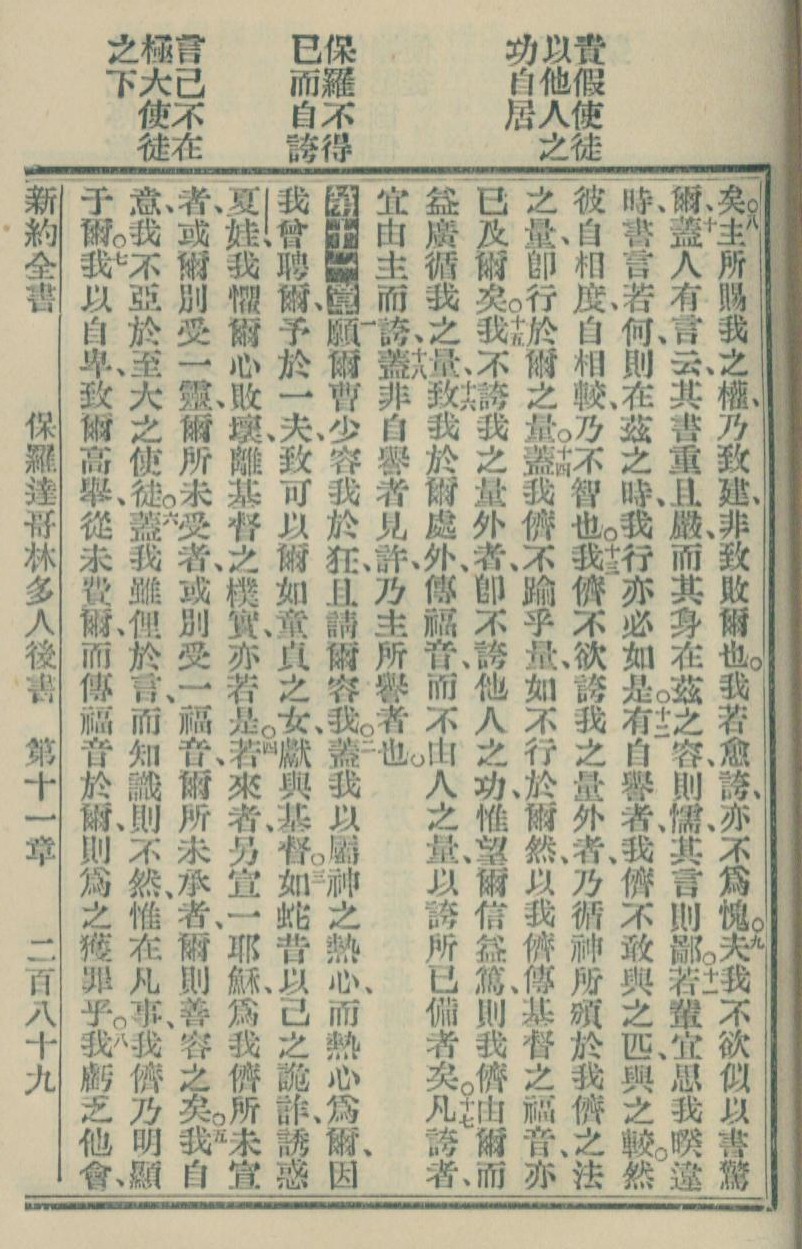 責假使徒
以他人之
功自居
保羅不得
已而自誇
言己不在
極大使徒
之下
矣、○八主所賜我之權、乃致建、非致敗爾也。我若愈誇、亦不爲愧。○九夫我不欲似以書驚
爾、十蓋人有言云、其書重且嚴、而其身在茲之容則懦、其言則鄙。○十一若輩宜思我暌違
時、書言若何、則在茲之時、我行亦必如是。○十二有自譽者、我儕不敢與之匹、與之較。然
彼自相度、自相較、乃不智也。○十三我儕不欲誇我之量外者、乃循神所頒於我儕之法
之量、卽行於爾之量。○十四蓋我儕不踰乎量、如不行於爾然、以我儕傳基督之福音、亦
已及爾矣。○十五我不誇我之量外者、卽不誇他人之功、惟望爾信益篤、則我儕由爾而
益廣、循我之量、十六致我於爾處外、傳福音、而不由人之量、以誇所已備者矣。○十七凡誇者、
宜由主而誇、十八蓋非自譽者見許、乃主所譽者也。
第十一章一願爾曹少容我於狂、且請爾容我。○二蓋我以屬神之熱心、而熱心爲爾、因
我曾聘爾、予於一夫、致可以爾如童貞之女、獻與基督。○三如蛇昔以己之詭詐、誘惑
夏娃、我懼爾心敗壞、離基督之樸實、亦若是。○四若來者、另宣一耶穌、爲我儕所未宣
者、或爾別受一靈、爾所未受者、或別受一福音、爾所未承者、爾則善容之矣。○五我自
意、我不亞於至大之使徒。○六蓋我雖俚於言、而知識則不然、惟在凡事、我儕乃明顯
于爾。○七我以自卑、致爾高舉、從未費爾、而傳福音於爾、則爲之獲罪乎。○八我虧乏他會、
新約全書　保羅達哥林多人後書　第十一章　二百八十九